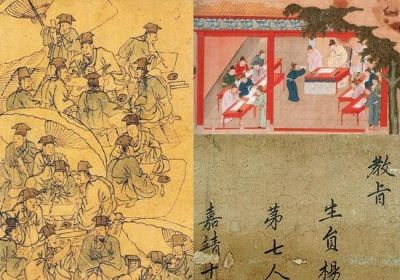 教旨
生員楊
第七人
嘉靖十